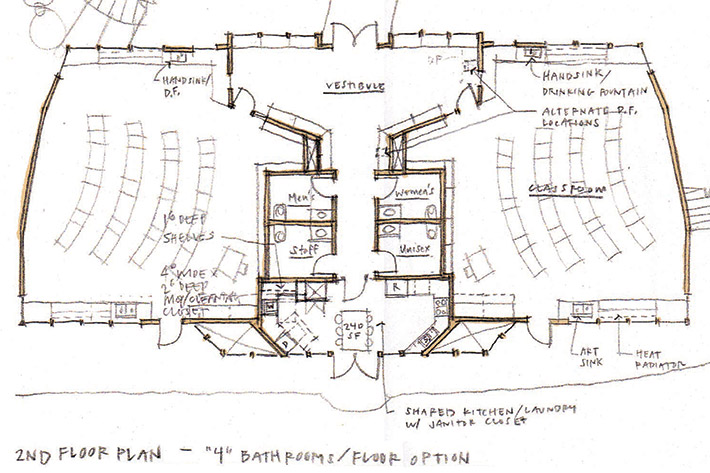 HANDSINK/
D.F.
VESTIBULE
D.F.
HANDSINK/
DRINKING FOUNTAIN
ALTERNATE D.F.
LOCATIONS
CLASSROOM
Men's
Women's
Staff
Unisex
1'0" DEEP
SHELVES
4'0" WIDE X
2'0" DEEP
MOP/CLEANING
CLOSET
W
D
R
240
SF
ART
SINK
HEAT
RADIATOR
SHARED KITCHEN/LAUNDRY
W/ JANITOR CLOSET
2ND FLOOR PLAN — "4" BATHROOMS/FLOOR OPTION